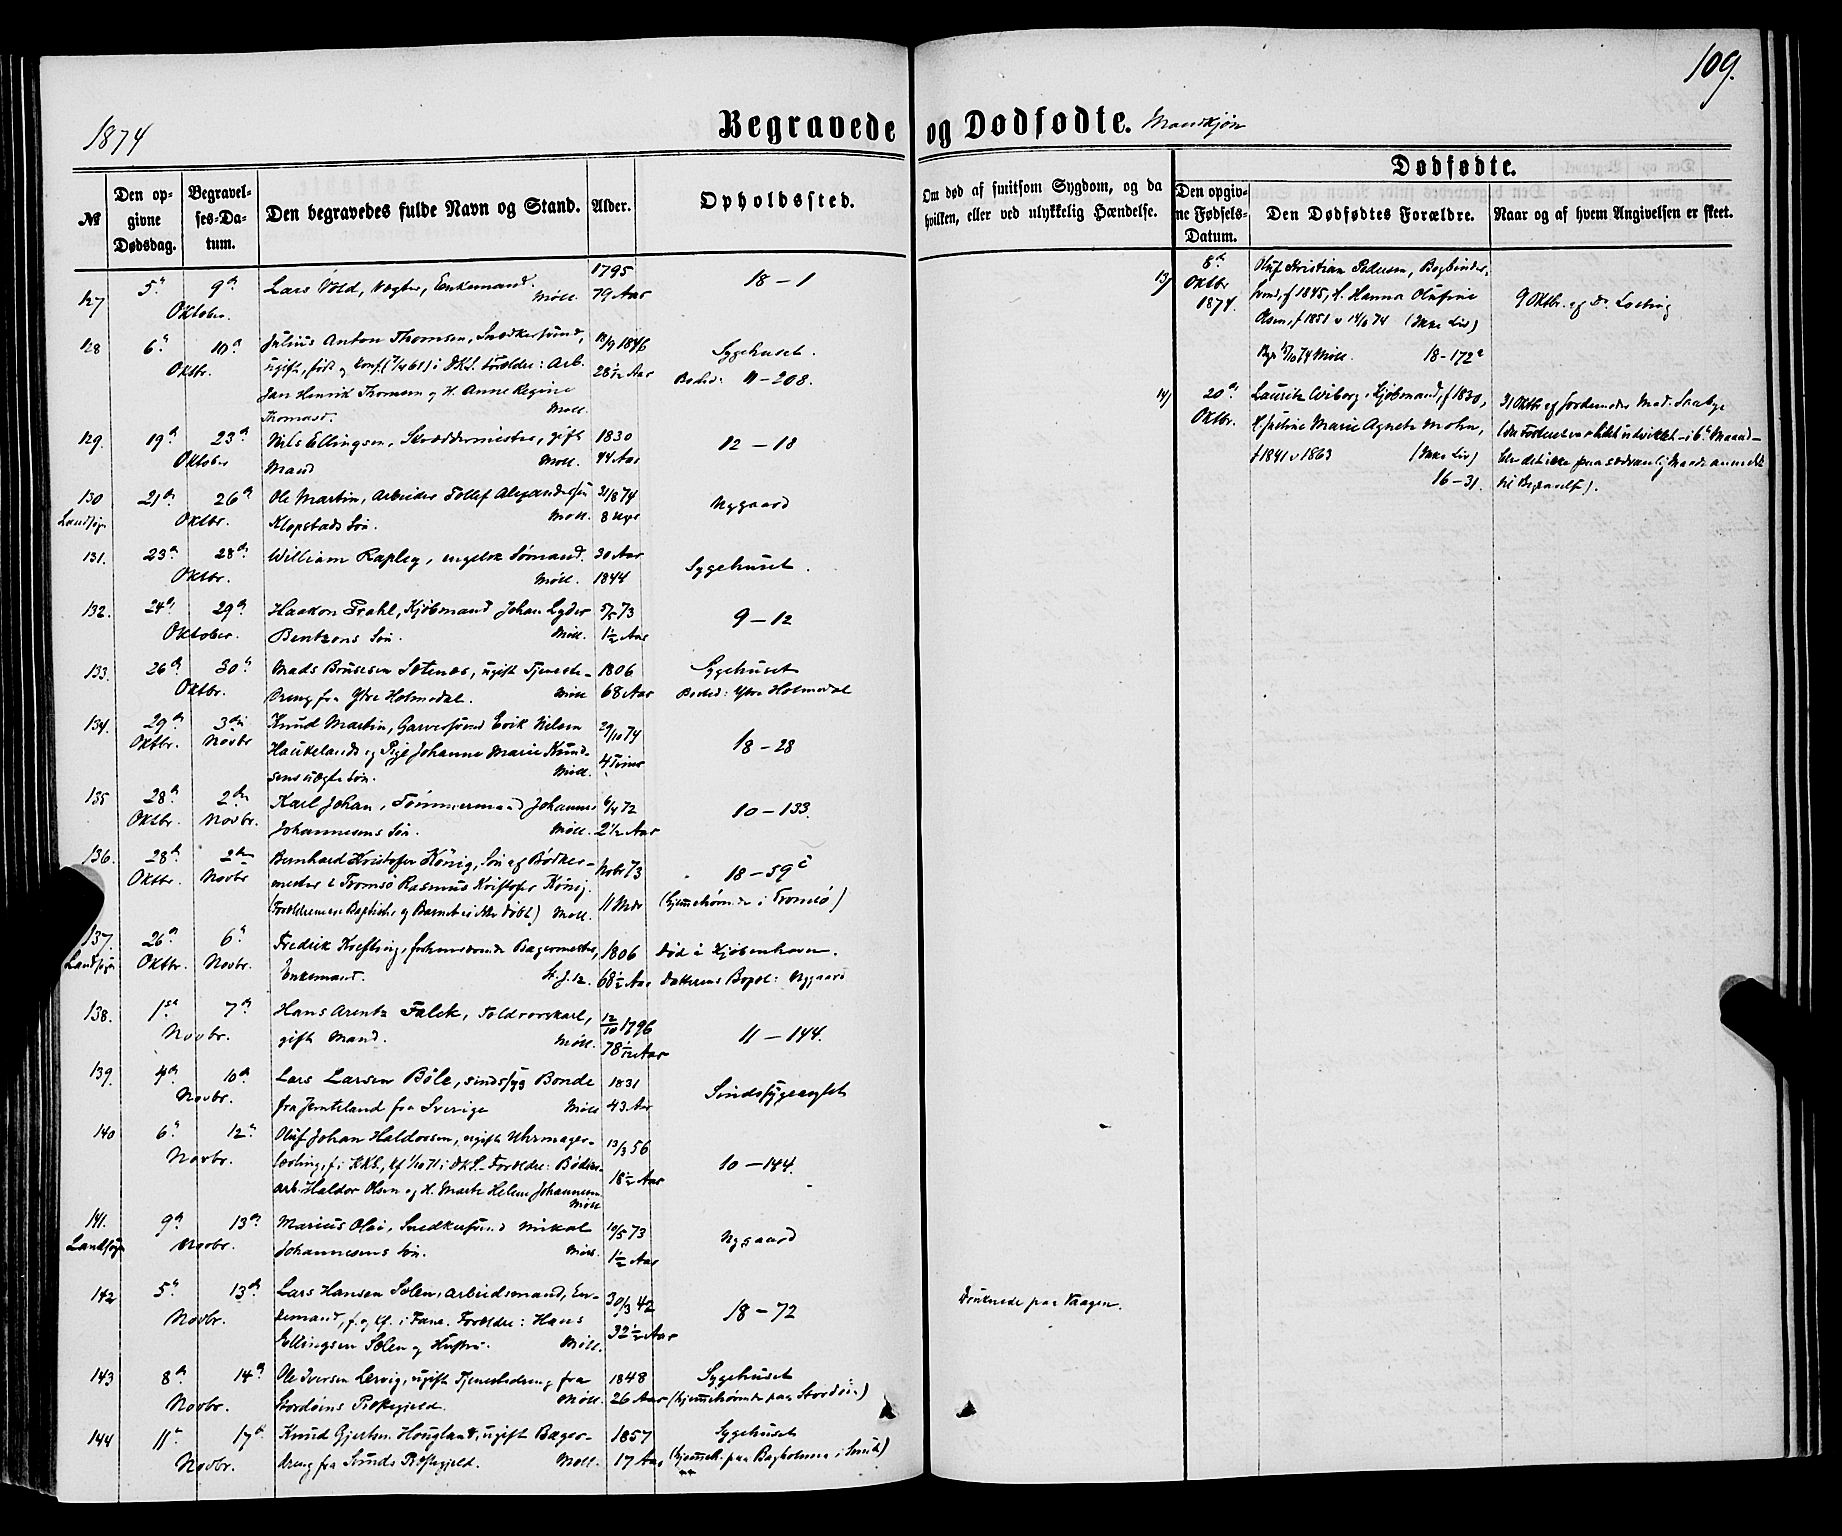 1874
Begravede og Dødfødte. Mandkjøn
109.
№
Den opgivne Dødsdag.
Begravelses-Datum.
Den begravedes fulde Navn og Stand.
Alder.
Opholdssted.
Om død af smitsom Sygdom, og da hvilken, eller ved ulykkelig Hændelse.
Dødfødte.
Den opgivne Fødsels-Datum.
Den Dødfødtes Forældre.
Naar og af hvem Angivelsen er skeet.
127 5te 9de Oktober
Lars Vold, Vægter, Enkemand. Møll.
1795 79 Aar
18 – 1
128 6te 10de Oktbr.
Julius Anton Thomsen, Snedkersvend,
ugift, født og konf. i DKS. Forældre: Arb.
Jan Henrik Thomsen og H. Anne Regine
Thomasd. Møll.
1846 28 1/12 Aar
Sygehuset.
11 – 208.
129. 19de 23de Oktober
Nils Ellingsen, Skræddermester, gift
Mand Møll.
1830 44 Aar
12 – 18
130 Landsogn 21de 26de Oktbr.
Ole Martin, Arbeider Tollef Alexandersen
Klopstads Søn. Møll.
31/8 74 8 Uger
Nygaard
131. 23de 28de Oktbr.
William Rapley, engelsk Sømand. Møll.
30 Aar 1844
Sygehuset.
132. 24de 29de Oktober.
Haakon Prahl, Kjøbmand Johan Lyder
Bentzons Søn. Møll.
5/5 73 1½ Aar
9 – 12
133. 26de 30te Oktbr.
Mads Brusesen Sætenes, ugift Tjeneste-
dreng fra Ytre Holmedal. Møll
1806 68 Aar
Sygehuset
Bosted: Ytre Holmedal
134. 29de Oktbr. 3die Novbr
Knud Martin, Garversvend Erik Nielsen
Haukelands og Pige Johanne Marie Knud-
sens uægte Søn. Møll.
29/10 74 4 Timer
18 – 28
135 28de Oktbr. 2den Novbr.
Karl Johan, Tømmermand Johannes
Johannesens Søn. Møll.
6/4 72 2½ Aar
10 – 133.
136. 28de Oktbr. 2den Novbr
Bernhard Kristofer König, Søn af Bødker-
mester i Tromsø Rasmus Kristofer König.
(Forældrene ere Baptister og Barnet er ikke døbt) Møll.
Nobr 73 11 Mdr
18 – 59c
(hjemmehørende i Tromsø)
137. Landsogn 26de Oktbr. 6te Novbr.
Fredrik Krefting, forhenværende Bagermester,
Enkemand. St. J. 12.
1806 68½ Aar
død i Kjøbenhavn.
Datterens Bopæl: Nygaard
138. 1ste 7de Novbr.
Hans Arentz Falck, Toldroerskarl,
gift Mand. Møll.
12/10 1796 78 1/12 Aar
11 – 144.
139. 4de 10de Novbr.
Lars Larsen Böle, sindssyg Bonde
fra Jemteland fra Sverige Møll
1831 43 Aar
Sindssygeasylet
140 6te 12te Novbr.
Oluf Johan Haldorsen, ugift Uhrmager-
lærling, f. i KKS., kf 1/10 71 i DKS. Forældre: Bødker-
arb. Haldor Olsen og H. Marte Helene Johannesen
Møll
13/3 56 18½ Aar
10 – 144.
141. Landsogn 9de 13de Novbr.
Marius Olai, Snedkersvend Mikal
Johannesens Søn. Møll.
10/5 73 1½ Aar
Nygaard
142 5te 13de Novbr.
Lars Hansen Solen, Arbeidsmand, En-
kemand, f. og kf. i Fane. Forældre: Hans
Ellingsen Solen og Hustru. Møll.
30/3 42 32½ Aar
18 – 72
Druknede paa Vaagen.
143 8de 14de Novbr.
Ole Iversen Lervig, ugift Tjenestedreng fra
Stordøens Præstegjeld. Møll.
1848 26 Aar
Sygehuset
(hjemmehørende paa Stordøen)
144 11te 17de Novbr.
Knud Gjertsen Hougland, ugift Bager-
dreng fra Sunds Præstegjeld. Møll.
1857 17 Aar
Sygehuset
(hjemmeh. paa Bagholmen i Sund)
13) 8de Oktbr 1874.
Oluf Kristian Pedersen, Bogbinder-
svend, f 1845, H. Hanna Olufine
Olsen, f 1851 (Ikke Liv)
Møll. 18 – 172c
9 Oktbr. af Dr. Loeting
14) 20de Oktbr.
Lauritz Wiborg, Kjøbmand, f 1830,
H. Justine Marie Agnete Mohn,
f 1841 v 1863 (Ikke Liv)
16 – 31.
31 Oktbr af Jordemoder Mad. Saabye
(da Fosteret var lidet udviklet – i 6te Maaned –
blev det ikke paa sædvanlig Maade anmeldt
til Begravelse).